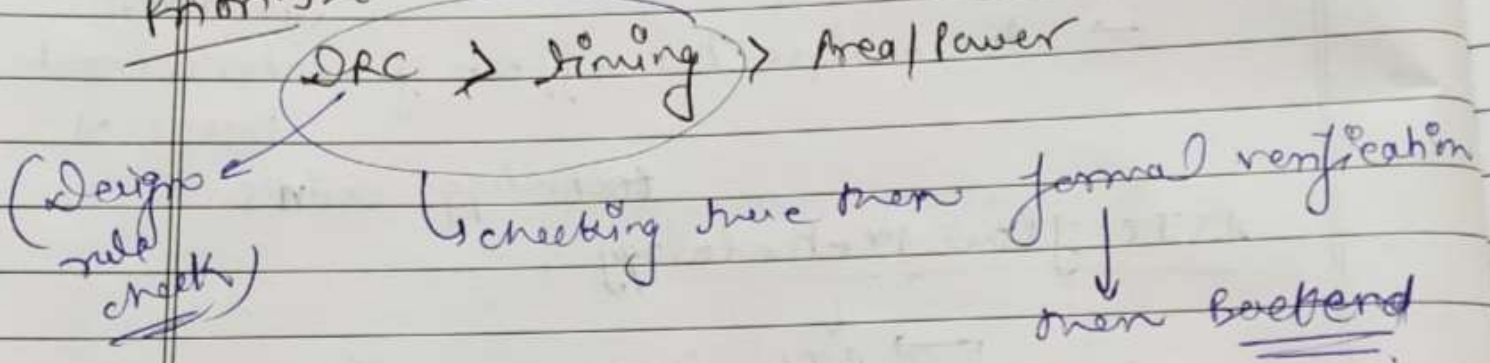 DRC > timing > Area/Power
(Design rule check)
checking these then formal verification
then Backend